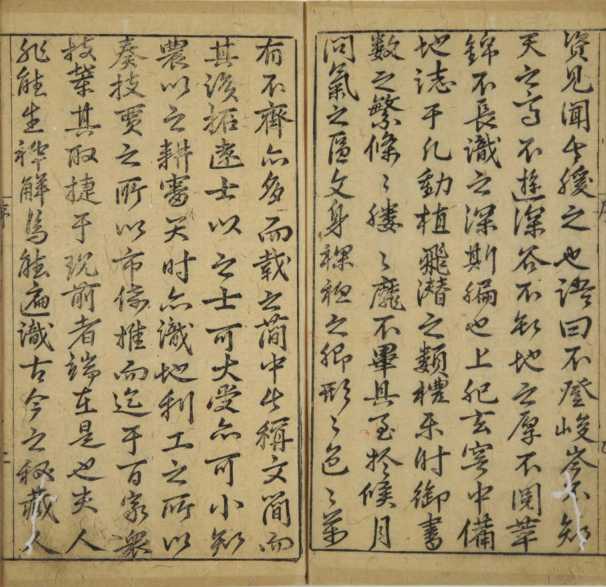 資見聞者緩之也語曰不登峻岑不知
天之高不遊深谷不知地之厚不閱莘
錦不長識之深斯編也上紀玄穹中備
地誌于凡動植飛潛之類禮樂时御書
數之繁條〻縷〻靡不畢具至於候月
问氣之區文身裸袒之鄉形〻色〻萬
有不齊亦多而載之簡中者稱文簡而
其該拓遠士以之士可大受亦可小知
農以之耕審天时亦識地利工之所以
奏技賈之所以市儈推而迄于百家眾
技業其取捷于現前者端在是也夫人
非能生神解焉能遍識古今之秘藏人
序